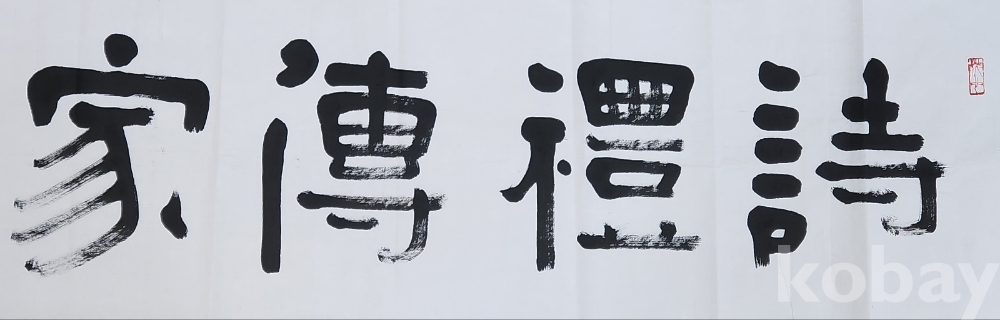 詩禮傳家
kobay